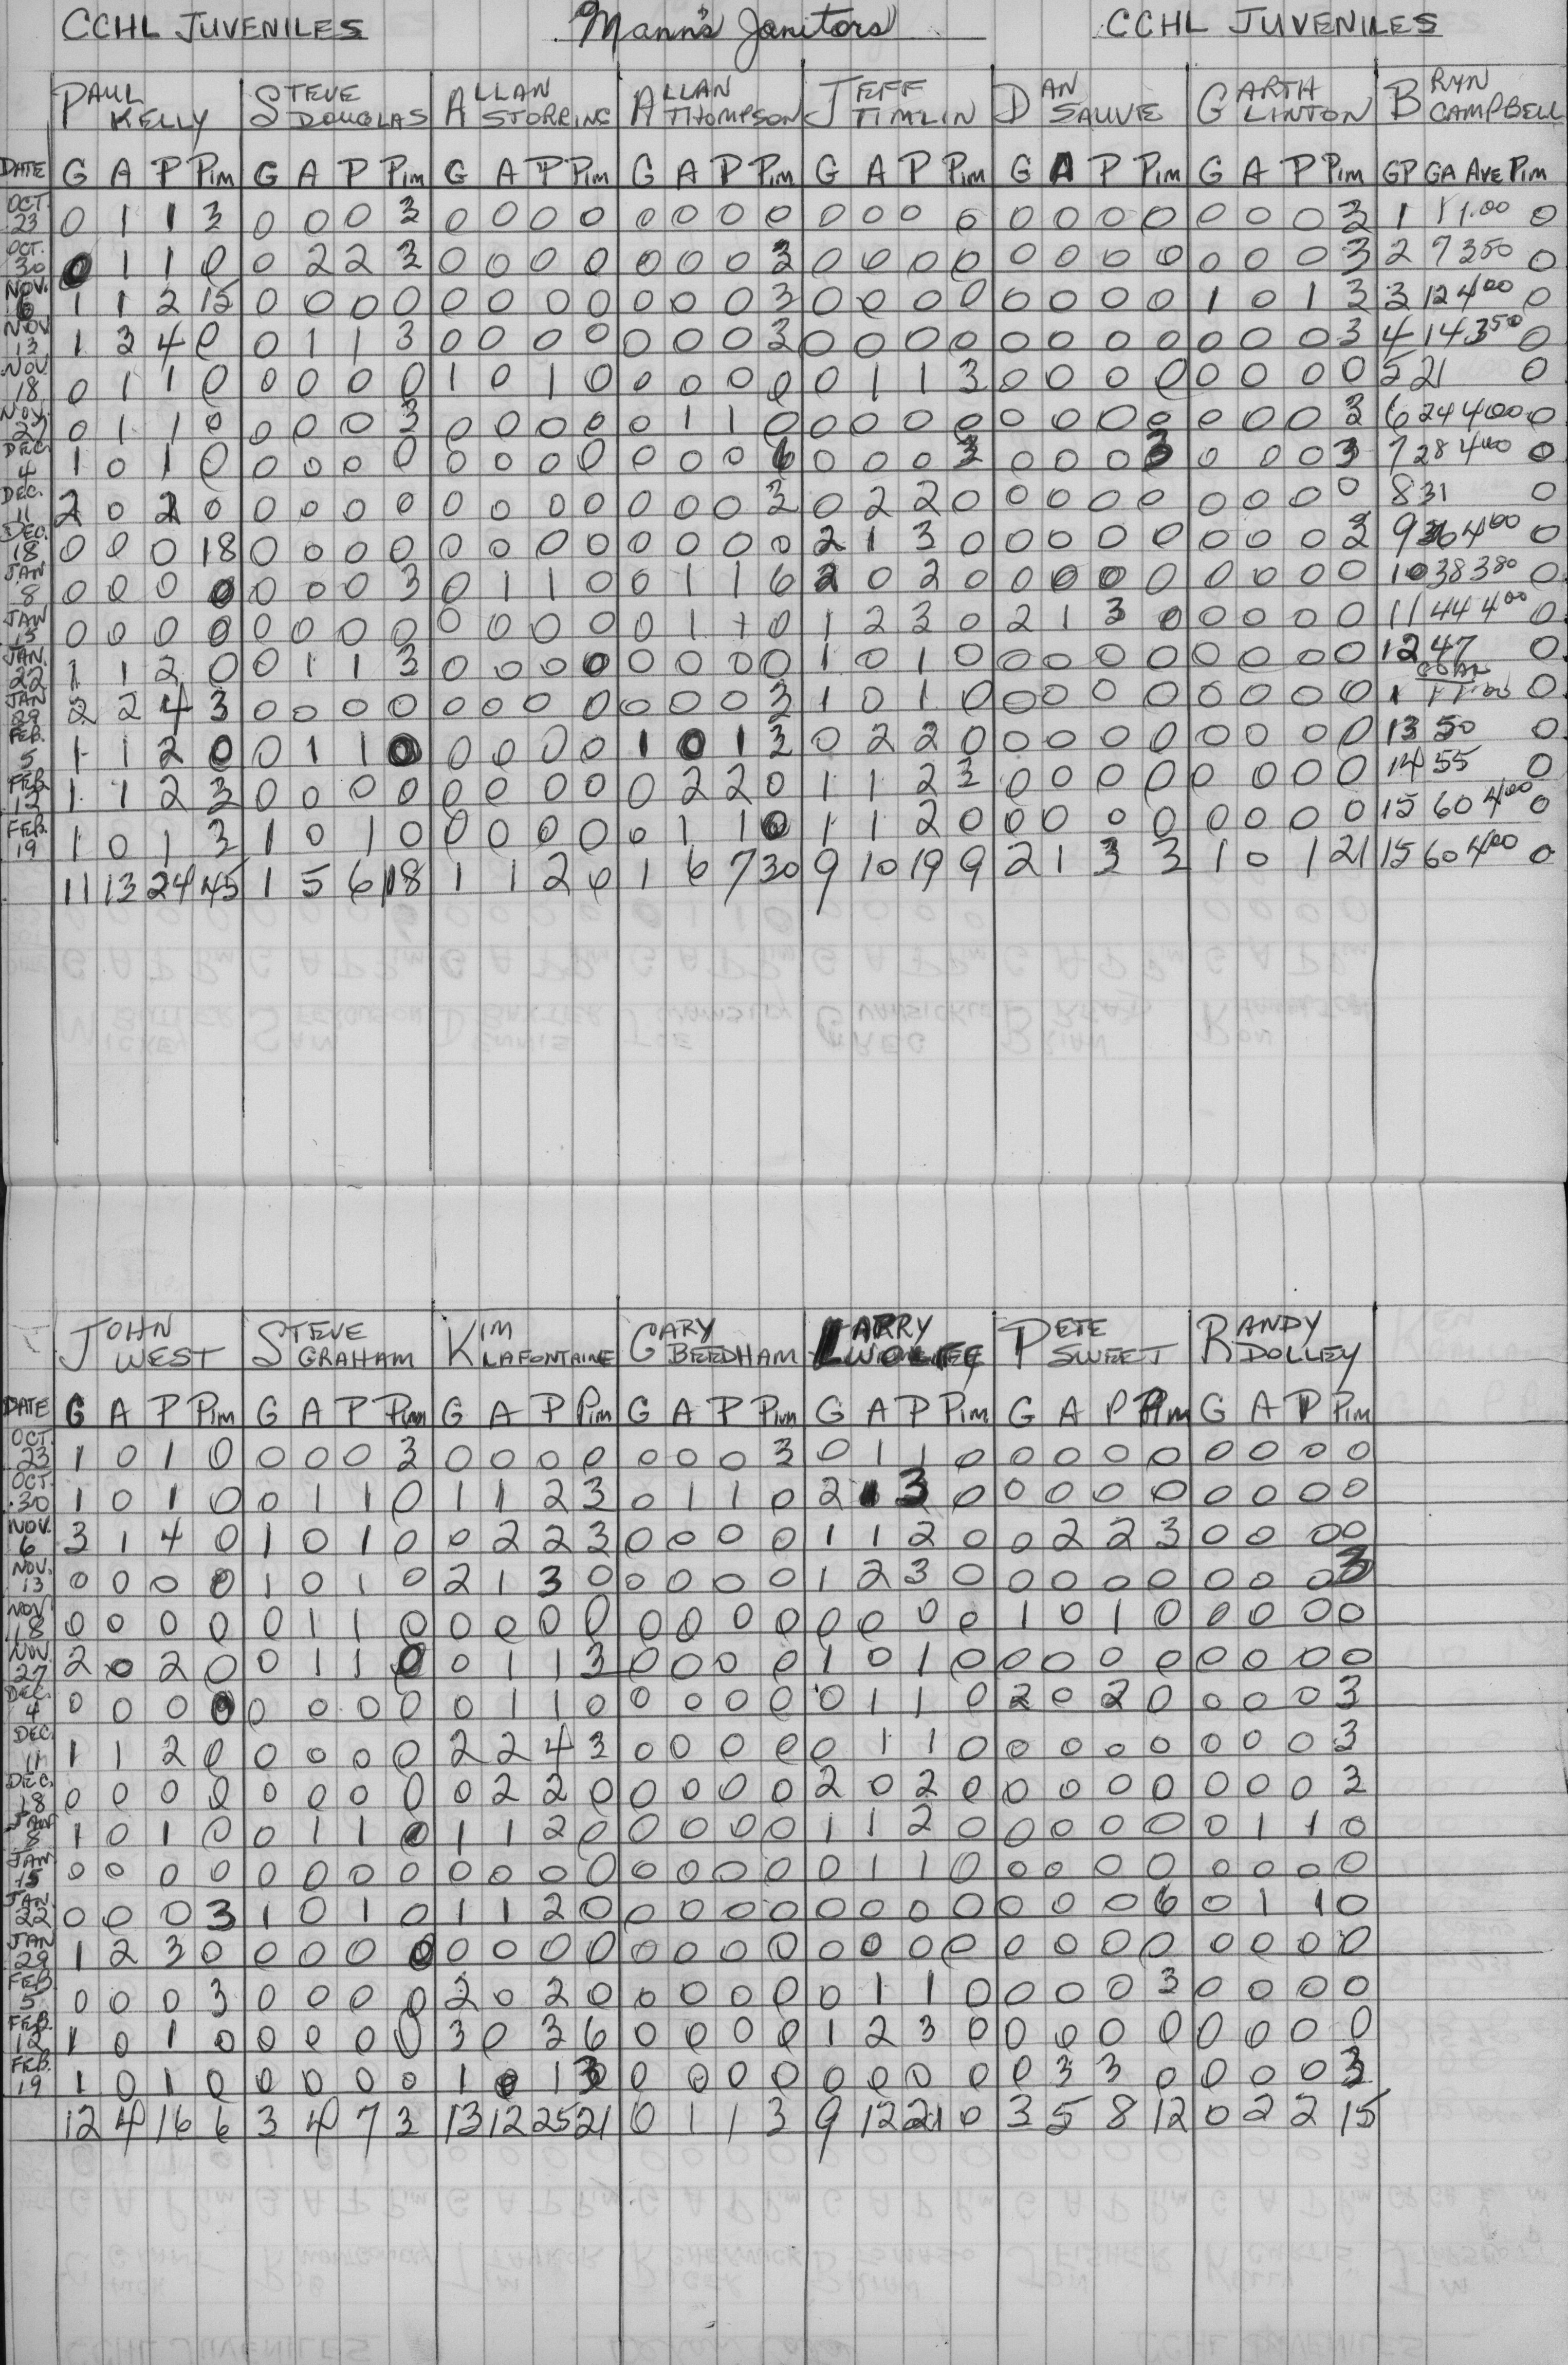 CCHL JUVENILES Mann's Janitors CCHL JUVENILES
PAUL KELLY STEVE DOUGLAS ALLAN STORRING ALLAN THOMPSON JEFF TIMLIN DAN SAUVE GARTH LINTON BRYN CAMPBELL
DATE G A P PIM G A P PIM G A P PIM G A P PIM G A P PIM G A P PIM G A P PIM GP GA AVE PIM
OCT. 23 0 1 1 3 0 0 0 3 0 0 0 0 0 0 0 0 0 0 0 0 0 0 0 0 0 0 0 3 1 1 1.00 0
OCT. 30 0 1 1 0 0 2 2 3 0 0 0 0 0 0 0 3 0 0 0 0 0 0 0 0 0 0 0 3 2 7 350 0
NOV. 6 1 1 2 15 0 0 0 0 0 0 0 0 0 0 0 3 0 0 0 0 0 0 0 0 1 0 1 3 3 12 400 0
NOV 13 1 3 4 0 0 1 1 3 0 0 0 0 0 0 0 3 0 0 0 0 0 0 0 0 0 0 0 3 4 14 350 0
NOV 18 0 1 1 0 0 0 0 0 1 0 1 0 0 0 0 0 0 1 1 3 0 0 0 0 0 0 0 0 5 21 0
NOV. 27 0 1 1 0 0 0 0 3 0 0 0 0 0 1 1 0 0 0 0 0 0 0 0 0 0 0 0 3 6 24 400 0
DEC 4 1 0 1 0 0 0 0 0 0 0 0 0 0 0 0 6 0 0 0 3 0 0 0 3 0 0 0 3 7 28 400 0
DEC. 11 2 0 2 0 0 0 0 0 0 0 0 0 0 0 0 3 0 2 2 0 0 0 0 0 0 0 0 0 8 31 0
DEC. 18 0 0 0 18 0 0 0 0 0 0 0 0 0 0 0 0 2 1 3 0 0 0 0 0 0 0 0 3 9 36 400 0
JAN 8 0 0 0 0 0 0 0 3 0 1 1 0 0 1 1 6 2 0 2 0 0 0 0 0 0 0 0 0 10 38 380 0
JAN 15 0 0 0 0 0 0 0 0 0 0 0 0 0 1 1 0 1 2 3 0 2 1 3 0 0 0 0 0 11 44 400 0
JAN. 22 1 1 2 0 0 1 1 3 0 0 0 0 0 0 0 0 1 0 1 0 0 0 0 0 0 0 0 0 12 47 0
JAN 29 2 2 4 3 0 0 0 0 0 0 0 0 0 0 0 3 1 0 1 0 0 0 0 0 0 0 0 0 1 1 1.00 0
FEB. 5 1 1 2 0 0 1 1 0 0 0 0 0 1 0 1 3 0 2 2 0 0 0 0 0 0 0 0 0 13 50 0
FEB 12 1 1 2 3 0 0 0 0 0 0 0 0 0 2 2 0 1 1 2 3 0 0 0 0 0 0 0 0 14 55 0
FEB. 19 1 0 1 3 1 0 1 0 0 0 0 0 0 1 1 0 1 1 2 0 0 0 0 0 0 0 0 0 15 60 400 0
11 13 24 45 1 5 6 18 1 1 2 0 1 6 7 30 9 10 19 9 2 1 3 3 1 0 1 21 15 60 400 0
JOHN WEST STEVE GRAHAM KIM LAFONTAINE GARY BEEDHAM LARRY PETE SWEET RANDY DOLLEY
DATE G A P PIM G A P PIM G A P PIM G A P PIM G A P PIM G A P PIM G A P PIM
OCT. 23 1 0 1 0 0 0 0 3 0 0 0 0 0 0 0 3 0 1 1 0 0 0 0 0 0 0 0 0
OCT. 30 1 0 1 0 0 1 1 0 1 1 2 3 0 1 1 0 2 1 3 0 0 0 0 0 0 0 0 0
NOV. 6 3 1 4 0 1 0 1 0 0 2 2 3 0 0 0 0 1 1 2 0 0 2 2 3 0 0 0 0
NOV. 13 0 0 0 0 1 0 1 0 2 1 3 0 0 0 0 0 1 2 3 0 0 0 0 0 0 0 0 3
NOV 18 0 0 0 0 0 1 1 0 0 0 0 0 0 0 0 0 0 0 0 0 1 0 1 0 0 0 0 0
NOV. 27 2 0 2 0 0 1 1 0 0 1 1 3 0 0 0 0 1 0 1 0 0 0 0 0 0 0 0 0
DEC. 4 0 0 0 0 0 0 0 0 0 1 1 0 0 0 0 0 0 1 1 0 2 0 2 0 0 0 0 3
DEC. 11 1 1 2 0 0 0 0 0 2 2 4 3 0 0 0 0 0 1 1 0 0 0 0 0 0 0 0 3
DEC. 18 0 0 0 0 0 0 0 0 0 2 2 0 0 0 0 0 2 0 2 0 0 0 0 0 0 0 0 3
JAN 8 1 0 1 0 0 1 1 0 1 1 2 0 0 0 0 0 1 1 2 0 0 0 0 0 0 1 1 0
JAN 15 0 0 0 0 0 0 0 0 0 0 0 0 0 0 0 0 0 1 1 0 0 0 0 0 0 0 0 0
JAN. 22 0 0 0 3 1 0 1 0 1 1 2 0 0 0 0 0 0 0 0 0 0 0 0 6 0 1 1 0
JAN 29 1 2 3 0 0 0 0 0 0 0 0 0 0 0 0 0 0 0 0 0 0 0 0 0 0 0 0 0
FEB 5 0 0 0 3 0 0 0 0 2 0 2 0 0 0 0 0 0 1 1 0 0 0 0 3 0 0 0 0
FEB. 12 1 0 1 0 0 0 0 0 3 0 3 6 0 0 0 0 1 2 3 0 0 0 0 0 0 0 0 0
FEB. 19 1 0 1 0 0 0 0 0 1 0 1 3 0 0 0 0 0 0 0 0 0 3 3 0 0 0 0 3
12 4 16 6 3 4 7 3 13 12 25 21 0 1 1 3 9 12 21 0 3 5 8 12 0 2 2 15